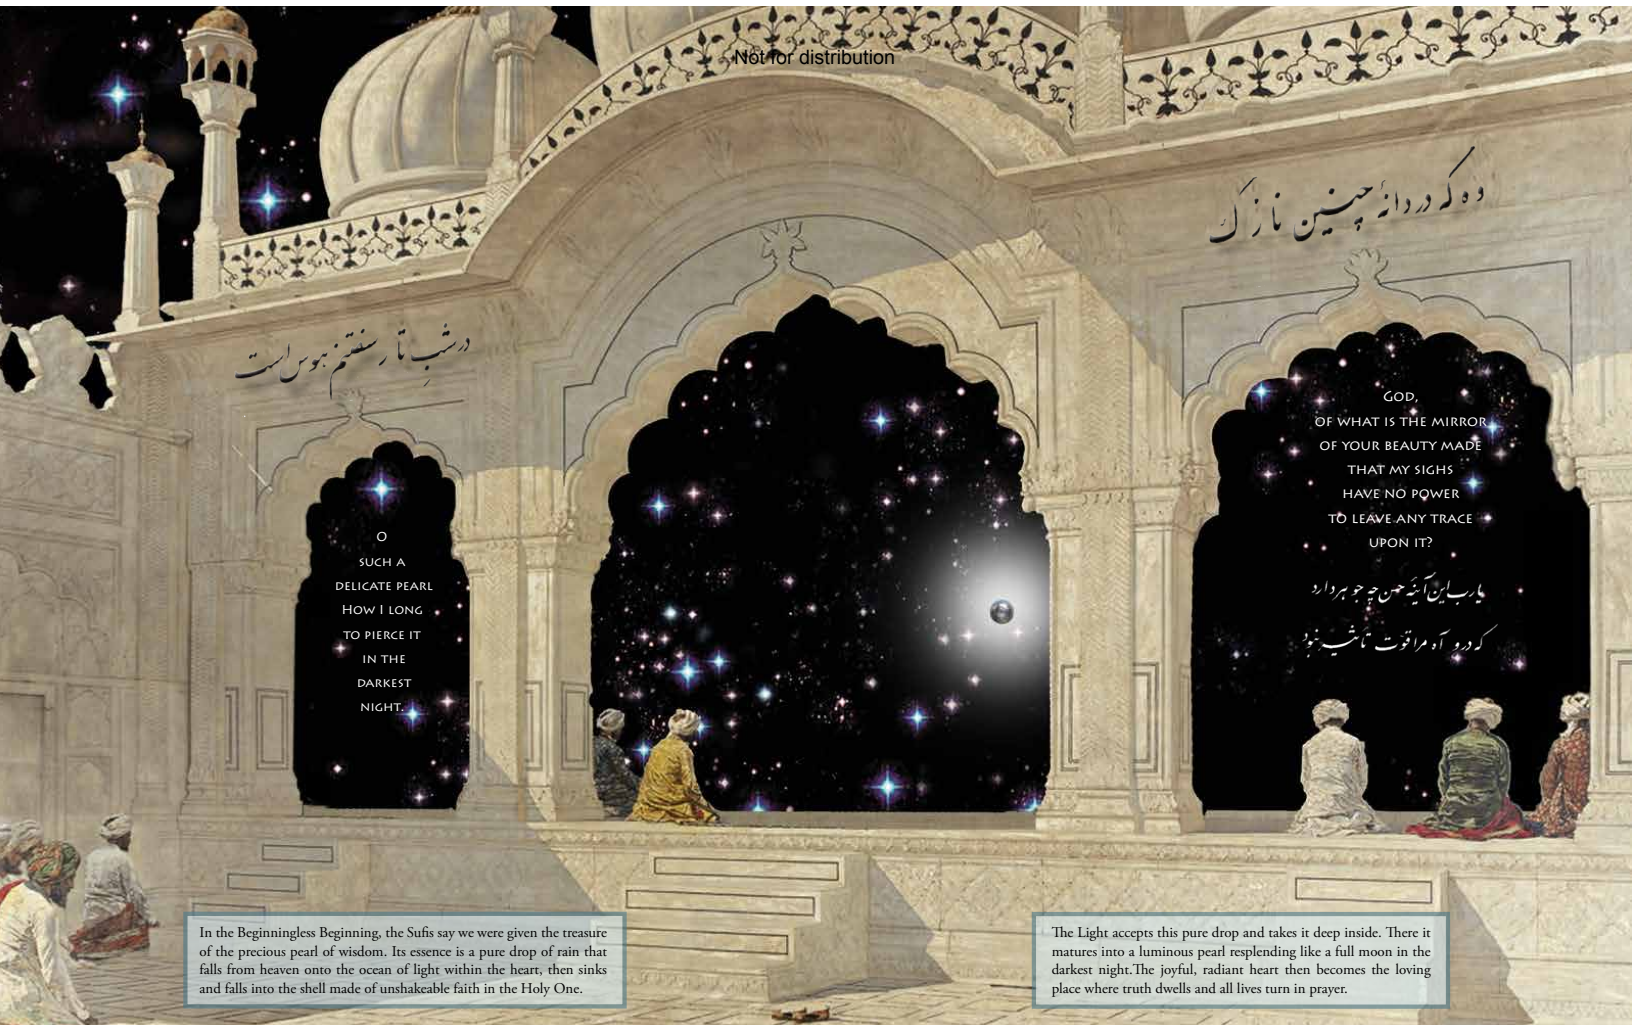 Not for distribution
وه که دردانهٔ چنین نازک
در شبِ تار سفتنم هوس است
O
SUCH A
DELICATE PEARL
HOW I LONG
TO PIERCE IT
IN THE
DARKEST
NIGHT.
GOD,
OF WHAT IS THE MIRROR
OF YOUR BEAUTY MADE
THAT MY SIGHS
HAVE NO POWER
TO LEAVE ANY TRACE
UPON IT?
یارب این آینهٔ حسن چه جوهر دارد
که درو آه مرا قوّت تاثیر نبود
In the Beginningless Beginning, the Sufis say we were given the treasure
of the precious pearl of wisdom. Its essence is a pure drop of rain that
falls from heaven onto the ocean of light within the heart, then sinks
and falls into the shell made of unshakeable faith in the Holy One.
The Light accepts this pure drop and takes it deep inside. There it
matures into a luminous pearl resplending like a full moon in the
darkest night.The joyful, radiant heart then becomes the loving
place where truth dwells and all lives turn in prayer.